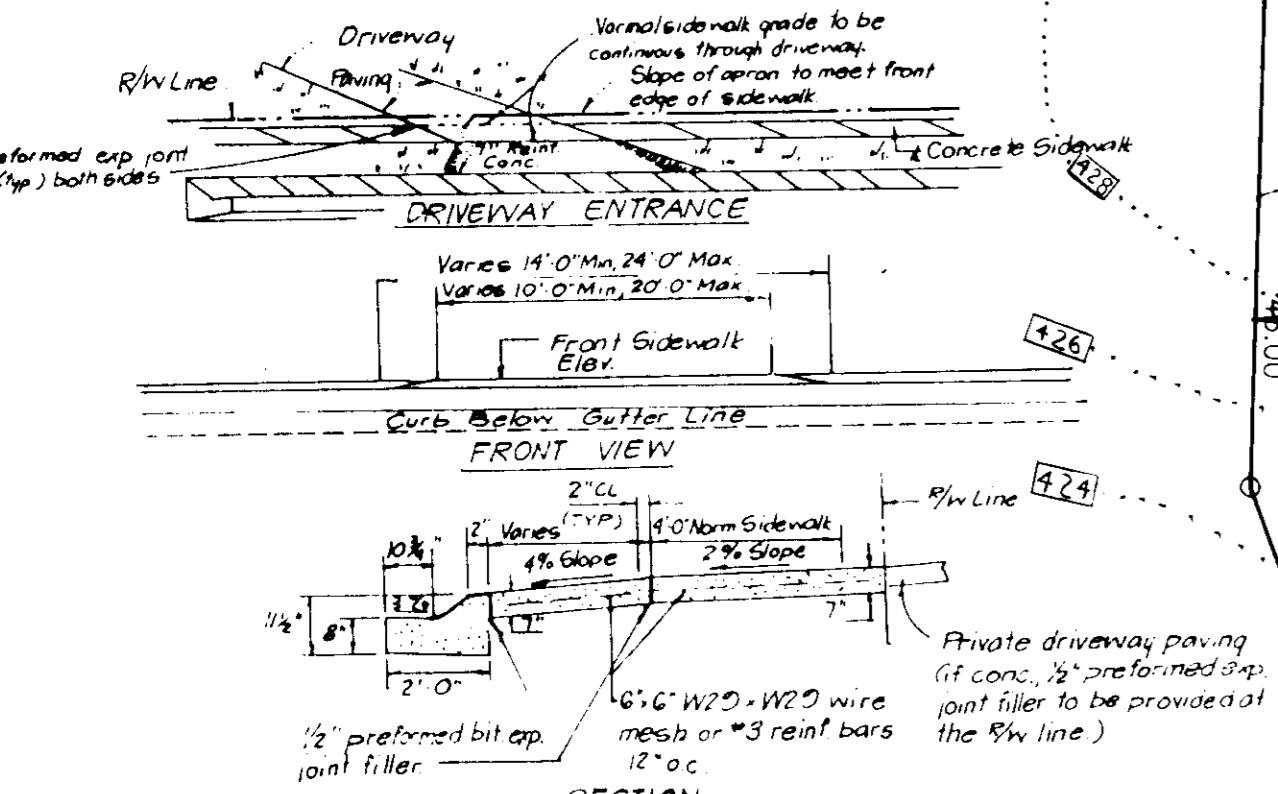 Driveway
R/W Line
Paving
Normal sidewalk grade to be
continuous through driveway.
Slope of apron to meet front
edge of sidewalk
eformed exp joint
(typ) both sides
7" Reinf.
Conc.
Concrete Sidewalk
DRIVEWAY ENTRANCE
428
Varies 14'-0" Min, 24'-0" Max
Varies 10'-0" Min, 20'-0" Max
Front Sidewalk
Elev.
426
Curb Below Gutter Line
FRONT VIEW
424
R/W Line
2" CL
(TYP)
2"
Varies
4'-0" Norm Sidewalk
10 3/4"
4% Slope
2% Slope
11 1/2"
8"
7"
7"
2'-0"
Private driveway paving
(if conc., 1/2" preformed exp.
joint filler to be provided at
the R/W line.)
1/2" preformed bit. exp.
joint filler
6"x6" W2.9 x W2.9 wire
mesh or #3 reinf. bars
12" o.c.
SECTION